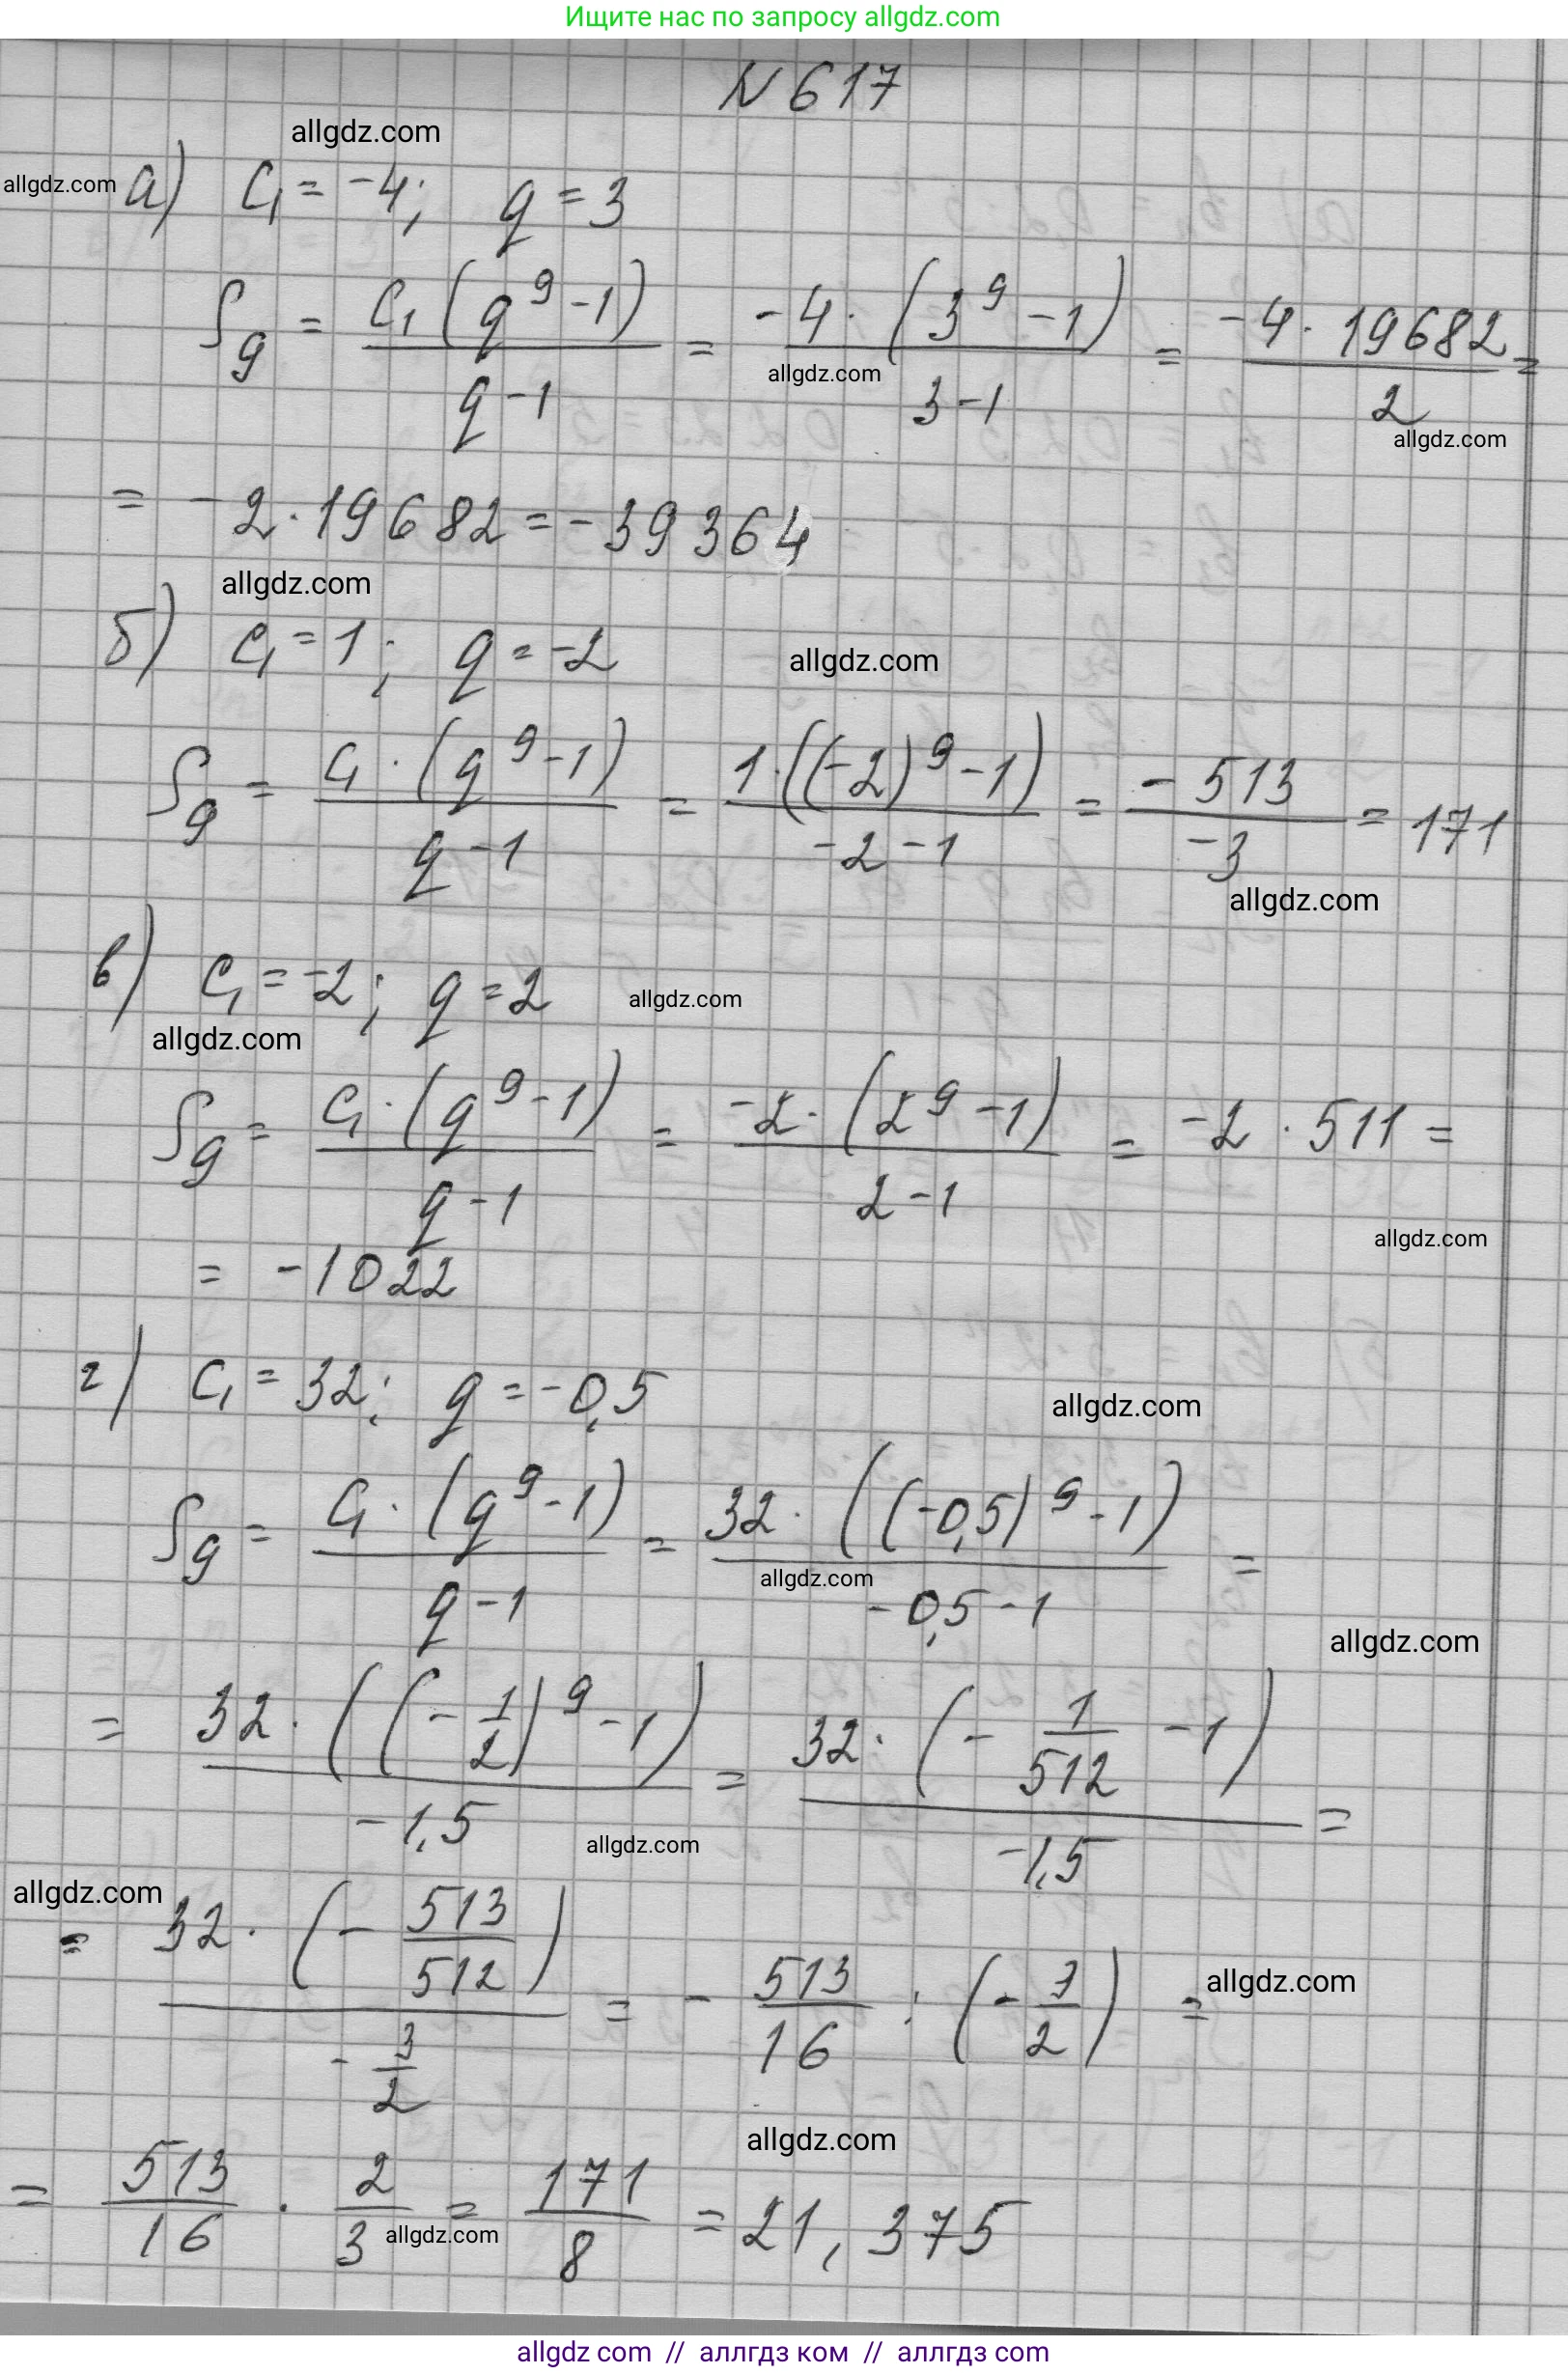 Ищите нас по запросу allgdz.com
N 617
allgdz.com
allgdz.com а) C₁ = -4; q = 3
S₉ = C₁(q⁹-1)/(q-1) = -4·(3⁹-1)/(3-1) = -4·19682/2 =
allgdz.com
allgdz.com
= -2·19682 = -39364
allgdz.com
б) C₁ = 1; q = -2
allgdz.com
S₉ = C₁·(q⁹-1)/(q-1) = 1·((-2)⁹-1)/(-2-1) = -513/-3 = 171
allgdz.com
в) C₁ = -2; q = 2
allgdz.com
allgdz.com
S₉ = C₁·(q⁹-1)/(q-1) = -2·(2⁹-1)/(2-1) = -2·511 =
allgdz.com
= -1022
г) C₁ = 32; q = -0,5
allgdz.com
S₉ = C₁·(q⁹-1)/(q-1) = 32·((-0,5)⁹-1)/(-0,5-1) =
allgdz.com
allgdz.com
= 32·((-1/2)⁹-1)/(-1,5) = 32·(-1/512-1)/(-1,5) =
allgdz.com
allgdz.com
= 32·(-513/512)/(-3/2) = -513/16 : (-3/2) =
allgdz.com
allgdz.com
= 513/16 · 2/3 = 171/8 = 21,375
allgdz.com
allgdz com // аллгдз ком // аллгдз com